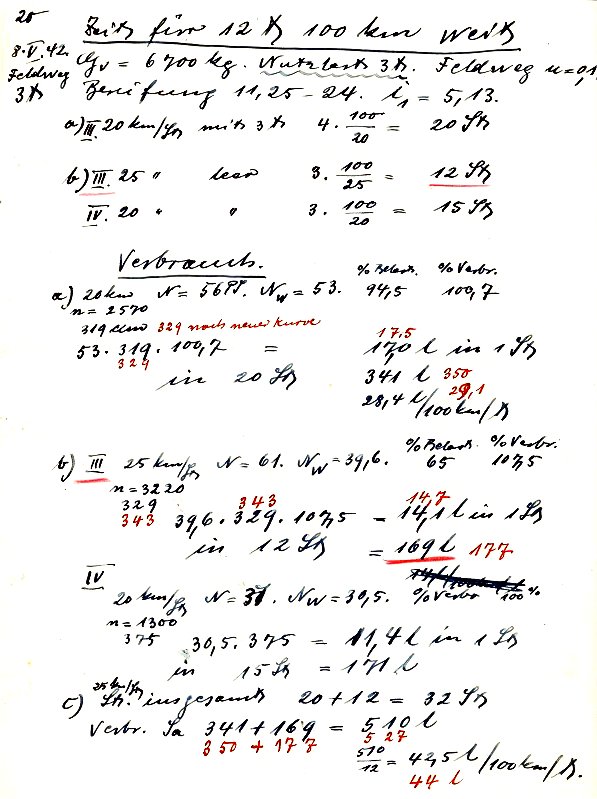 20
Zeit für 12 t 100 km weit
8.V.42. Gv = 6700 kg. Nutzlast 3t. Feldweg u=0,1
Feldweg
3t Bereifung 11,25-24. i₁ = 5,13.
a) III 20 km/St mit 3t 4. 100/20 = 20 St
b) III. 25 " leer 3. 100/25 = 12 St
IV. 20 " " 3. 100/20 = 15 St
Verbrauch.
% Belast. % Verbr.
a) 20 km N = 56 PS. Nw = 53. 94,5 100,7
n = 2570
319 329 nach neuer Kurve
17,5
53. 319. 100,7 = 17,0 l in 1 St
329
in 20 St 341 l 350
29,1
28,4 l/100km/t
% Belast. % Verbr.
b) III 25 km/St N = 61. Nw = 39,6. 65 107,5
n = 3220
329 343 14,7
343 39,6. 329. 107,5 = 14,1 l in 1 St
in 12 St = 169 l 177
IV
20 km/St N = 37. Nw = 30,5. % Verbr 100%
n = 1300
375 30,5. 375 = 11,4 l in 1 St
in 15 St = 171 l
25 km/St
c) St. insgesamt 20 + 12 = 32 St
Verbr. Sa 341 + 169 = 510 l
350 + 177 527
510/12 = 42,5 l/100km/t.
44 l